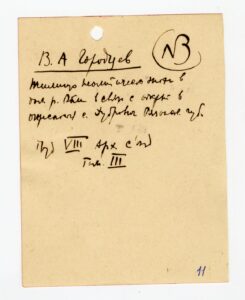 В. А Городцов
NB
Жилища неолитической эпохи в
дол. р. Оки в связи с открыт. в
окрестност. с. Дубровичи Рязанск. губ.
Труд VIII Арх с'езд
Том. III
11